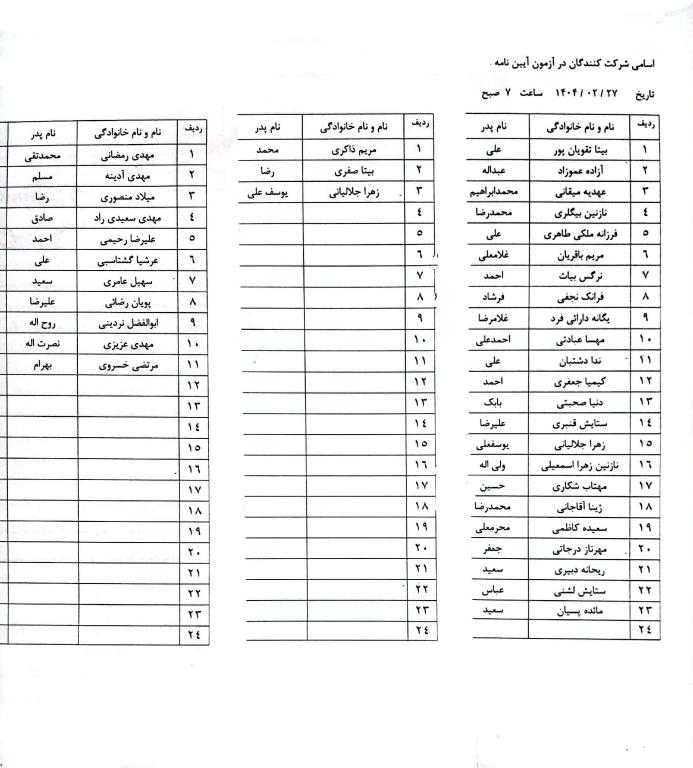 اسامی شرکت کنندگان در آزمون آیین نامه .
تاریخ ۱۴۰۴/۰۲/۲۷ ساعت ۷ صبح
ردیف نام و نام خانوادگی نام پدر
۱ بیتا تقویان پور علی
۲ آزاده عموزاد عبداله
۳ عهدیه میقانی محمدابراهیم
۴ نازنین بیگلری محمدرضا
۵ فرزانه ملکی طاهری علی
۶ مریم باقریان غلامعلی
۷ نرگس بیات احمد
۸ فرانک نجفی فرشاد
۹ یگانه دارائی فرد غلامرضا
۱۰ مهسا عبادتی احمدعلی
۱۱ ندا دشتبان علی
۱۲ کیمیا جعفری احمد
۱۳ دنیا صحبتی بابک
۱۴ ستایش قنبری علیرضا
۱۵ زهرا جلالیانی یوسفعلی
۱۶ نازنین زهرا اسمعیلی ولی اله
۱۷ مهتاب شکاری حسین
۱۸ ژینا آقاجانی محمدرضا
۱۹ سعیده کاظمی محرمعلی
۲۰ مهرناز درجاتی جعفر
۲۱ ریحانه دبیری سعید
۲۲ ستایش لشنی عباس
۲۳ مائده پسیان سعید
۲۴
ردیف نام و نام خانوادگی نام پدر
۱ مریم ذاکری محمد
۲ بیتا صفری رضا
۳ زهرا جلالیانی یوسف علی
۴
۵
۶
۷
۸
۹
۱۰
۱۱
۱۲
۱۳
۱۴
۱۵
۱۶
۱۷
۱۸
۱۹
۲۰
۲۱
۲۲
۲۳
۲۴
ردیف نام و نام خانوادگی نام پدر
۱ مهدی رمضانی محمدتقی
۲ مهدی آدینه مسلم
۳ میلاد منصوری رضا
۴ مهدی سعیدی راد صادق
۵ علیرضا رحیمی احمد
۶ عرشیا گشتاسبی علی
۷ سهیل عامری سعید
۸ پویان رضائی علیرضا
۹ ابوالفضل نردینی روح اله
۱۰ مهدی عزیزی نصرت اله
۱۱ مرتضی خسروی بهرام
۱۲
۱۳
۱۴
۱۵
۱۶
۱۷
۱۸
۱۹
۲۰
۲۱
۲۲
۲۳
۲۴